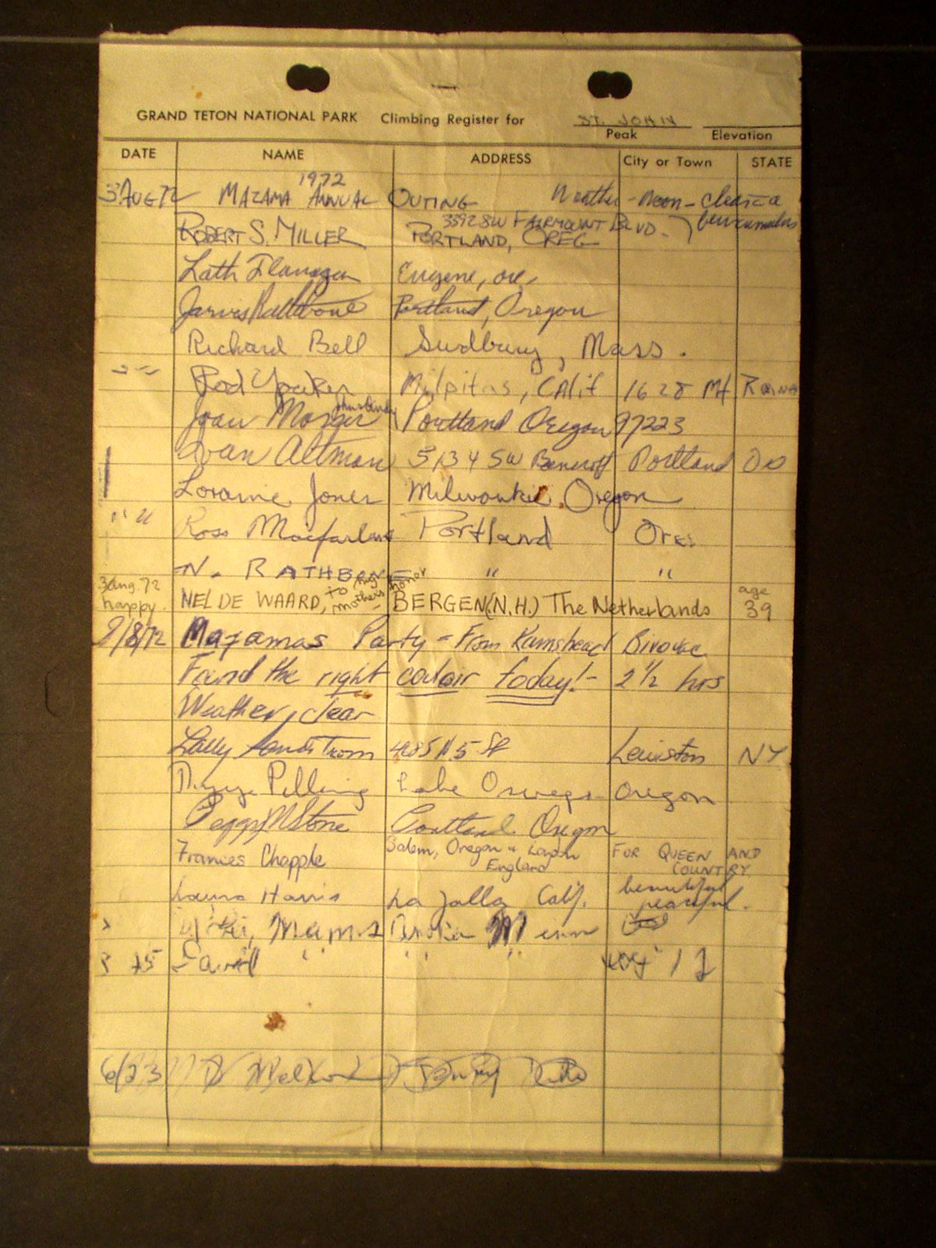 GRAND TETON NATIONAL PARK Climbing Register for ST. JOHN
Peak Elevation
DATE NAME ADDRESS City or Town STATE
1972
3 AUG 72 MAZAMA ANNUAL OUTING Weather - noon - clear - a few cumulus
3592 SW FAIRMOUNT BLVD.
ROBERT S. MILLER PORTLAND, OREG
Lath Flanagan Eugene, ore,
Jarvis Rathbone Portland, Oregon
Richard Bell Sudbury, Mass.
Rod Milpitas, Calif 1628 Mt
Joan Portland Oregon 97223
Altman 5134 SW Bancroft Portland
Loraine Jones Milwaukie, Oregon
" " Ross Macfarlane Portland Ore.
N. RATHBONE " "
3 Aug. 72 to my mothers honor age
happy. NEL DE WAARD, BERGEN (N.H.) The Netherlands 39
9/8/72 Mazamas Party - From Bivouac
Found the right today! - 2 1/2 hrs
Weather, clear
485 N 5 St Lewiston NY
Pelling Lake Oswego Oregon
Peggy M Stone Portland Oregon
Frances Chapple Salem, Oregon & England FOR QUEEN AND COUNTRY
Laura Harris La Jolla Calif. beautiful peaceful.
Minn
" " " "
6/23